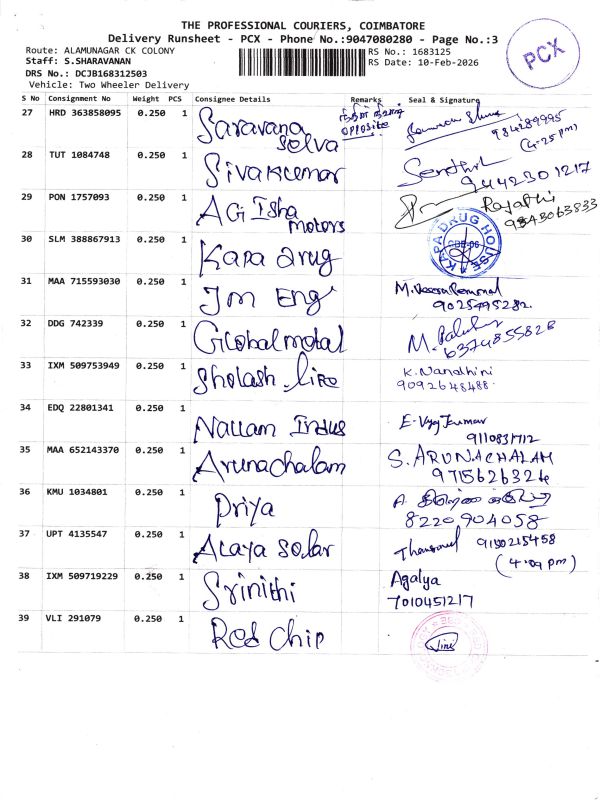 THE PROFESSIONAL COURIERS, COIMBATORE
Delivery Runsheet - PCX - Phone No.:9047080280 - Page No.:3
PCX
Route: ALAMUNAGAR CK COLONY
RS No.: 1683125
Staff: S.SHARAVANAN
RS Date: 10-Feb-2026
DRS No.: DCJB168312503
Vehicle: Two Wheeler Delivery
S No Consignment No Weight PCS Consignee Details Remarks Seal & Signature
27 HRD 363858095 0.250 1 Saravana Selva opposite (4.25 pm)
28 TUT 1084748 0.250 1 Sivakumar Senthil 9442301217
29 PON 1757093 0.250 1 AG Isha motors Rajathi 9343063833
30 SLM 388867913 0.250 1 Kapa drug KAPA DRUG HOUSE
31 MAA 715593030 0.250 1 Jm Eng
32 DDG 742339 0.250 1 Global metal 6374855828
33 IXM 509753949 0.250 1 K. Nandhini 9092648488
34 EDQ 22801341 0.250 1 Nallam Indus E-Vijay Kumar
35 MAA 652143370 0.250 1 Arunachalam S. ARUNACHALAM
36 KMU 1034801 0.250 1 Priya 8220904058
37 UPT 4135547 0.250 1 Alaya Solar 9150215458 (4.09 pm)
38 IXM 509719229 0.250 1 Srinithi Agalya 7010451217
39 VLI 291079 0.250 1 Red chip